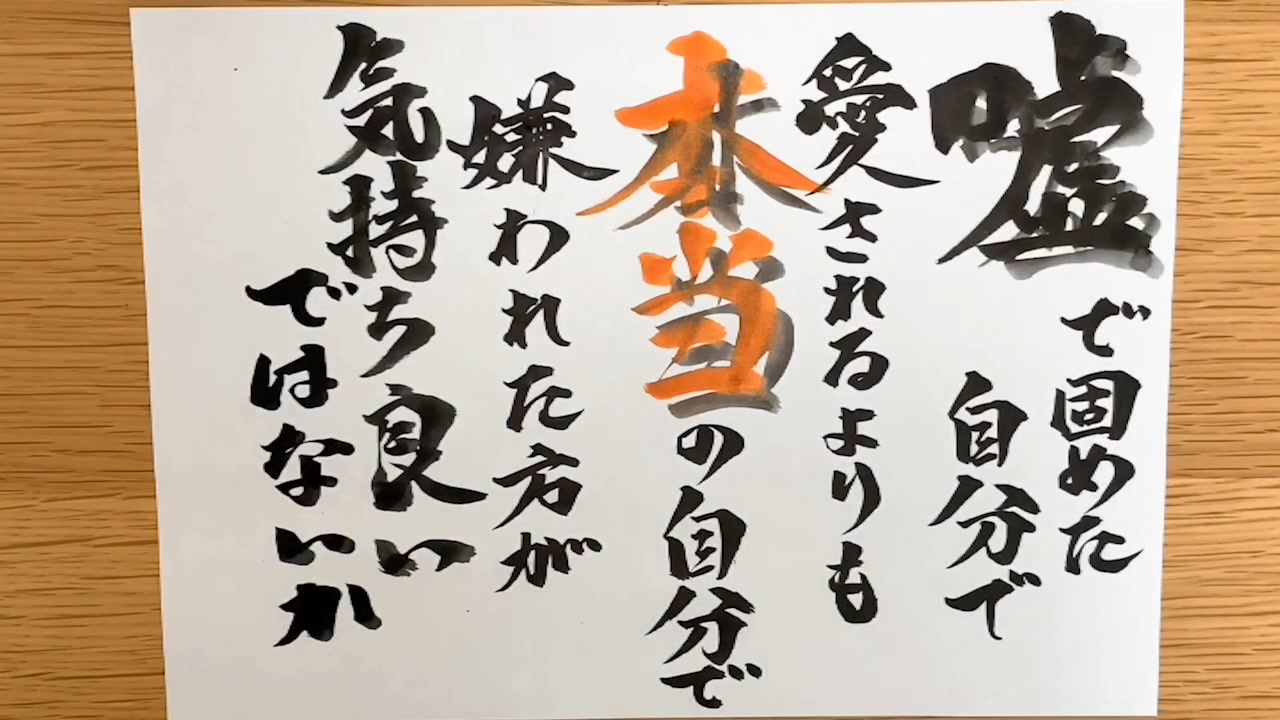 嘘で固めた
自分で
愛されるよりも
本当の自分で
嫌われた方が
気持ち良い
ではないか